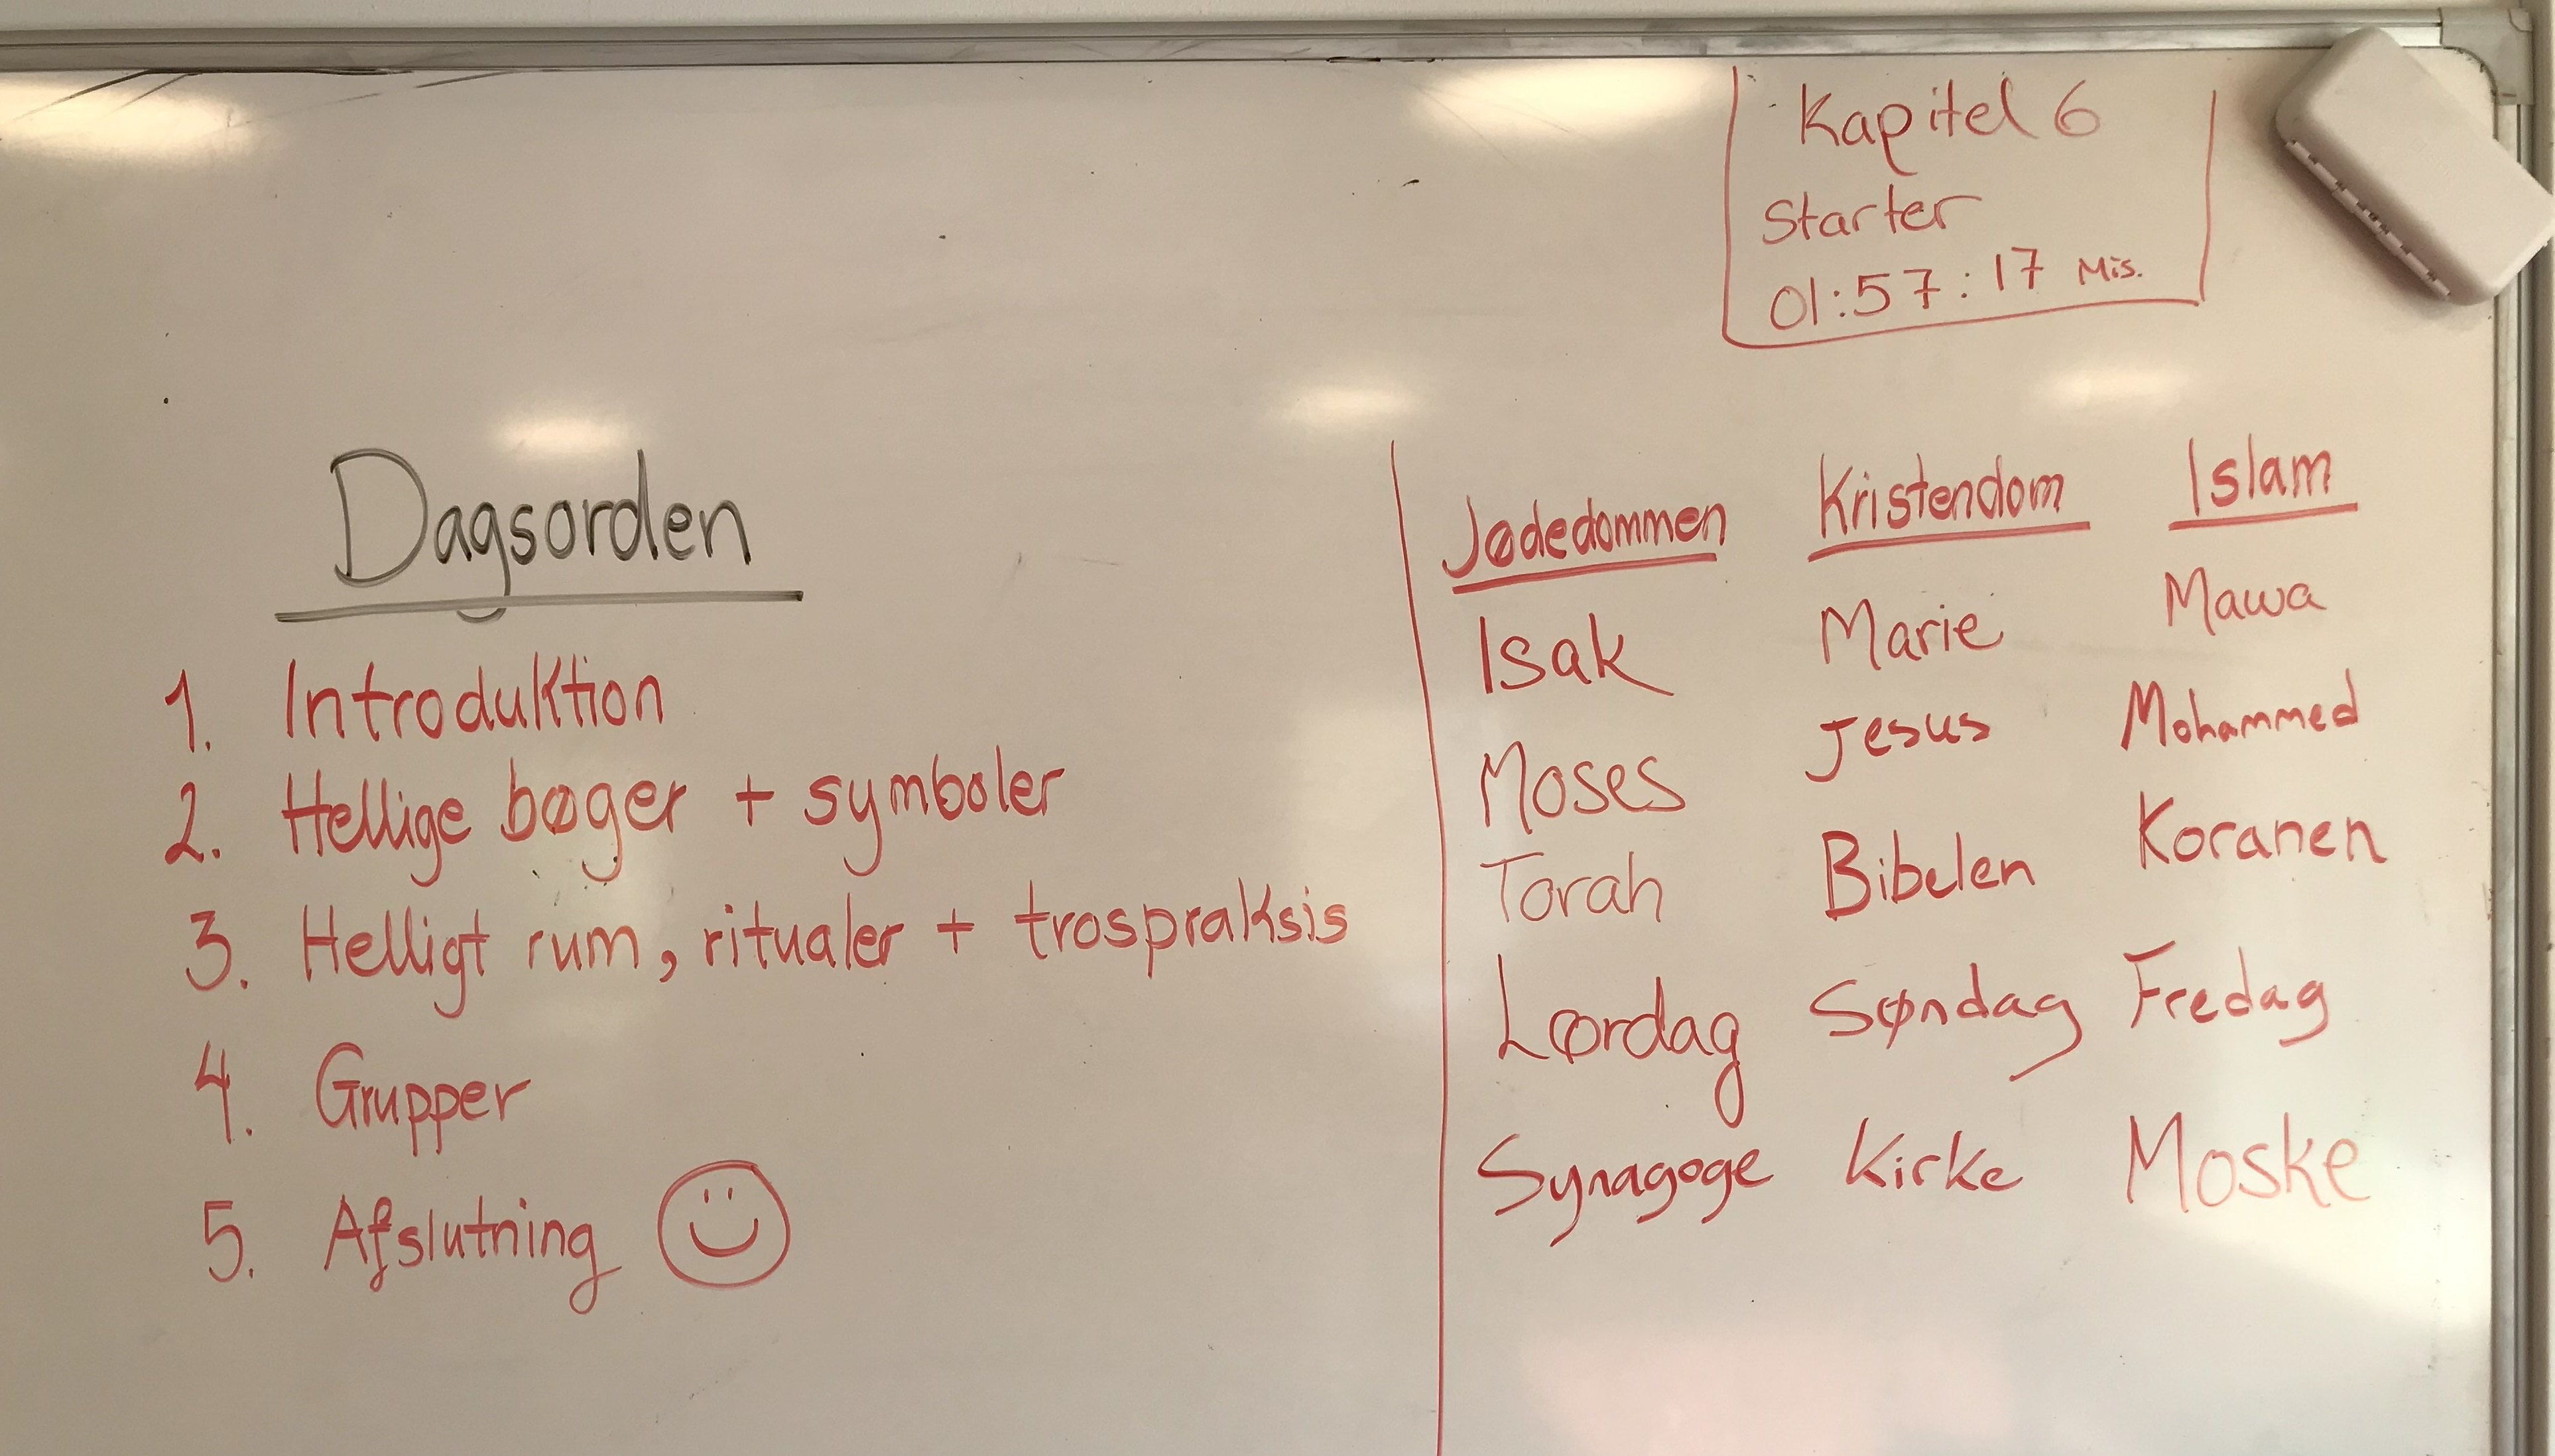 Kapitel 6
Starter
01:57:17 Mis.
Dagsorden
1. Introduktion
2. Hellige bøger + symboler
3. Helligt rum, ritualer + trospraksis
4. Grupper
5. Afslutning
Jødedommen Kristendom Islam
Isak Marie Mawa
Moses Jesus Mohammed
Torah Bibelen Koranen
Lørdag Søndag Fredag
Synagoge Kirke Moske